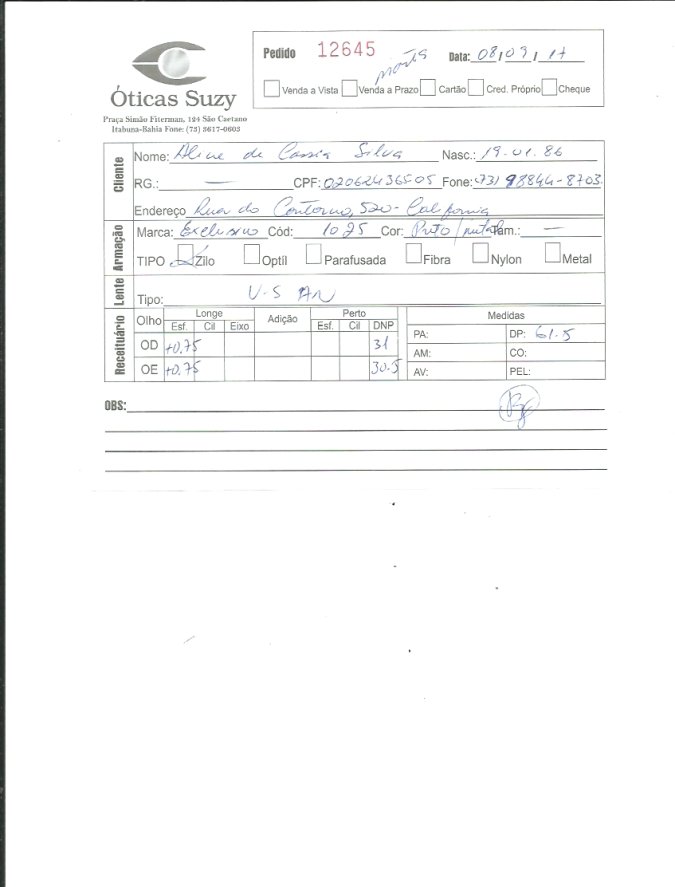 Pedido 12645 Data: 08/09/17
Venda a Vista Venda a Prazo Cartão Cred. Próprio Cheque
Óticas Suzy
Praça Simão Fiterman, 124 São Caetano
Itabuna-Bahia Fone: (73) 3617-0603
Cliente
Nome: Aline de Cassia Silva Nasc.: 19-01.86
RG.: — CPF: 02062436505 Fone: (73) 98844-8703
Endereço Rua do Contorno, 520 - California
Armação
Marca: Exclusivo Cód: 1025 Cor: Preto/ Tam.: —
TIPO Zilo Optíl Parafusada Fibra Nylon Metal
Lente
Tipo: V-S AR
Receituário
Olho Longe Adição Perto Medidas
Esf. Cil Eixo Esf. Cil DNP
OD +0,75 31 PA: DP: 61.5
AM: CO:
OE +0,75 30.5 AV: PEL:
OBS: